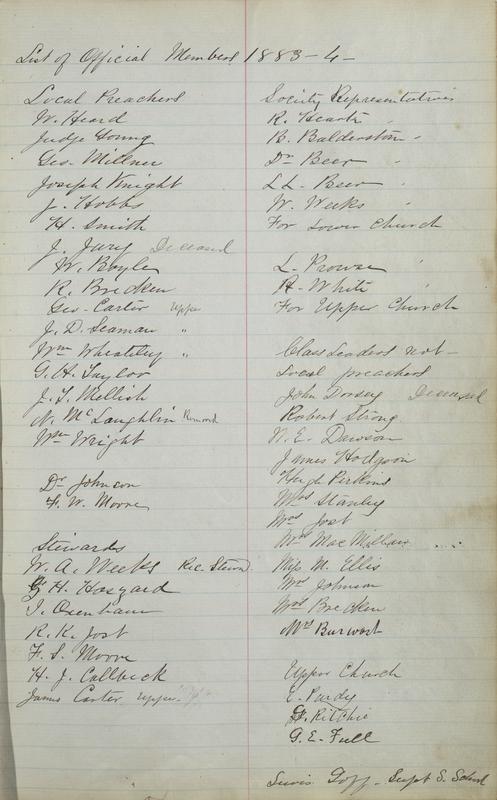 List of Official Members 1883-4-
Local Preachers
W. Heard
Judge Young
Geo. Millner
Joseph Knight
J. Hobbs
H. Smith
J. Jury Deceased
W. Boyle
R. Brecken
Geo. Carter Upper
J. D. Seaman "
Wm Wheatley "
G. H. Taylor
J. S. Mellish
N. McLaughlin Removed
Wm Wright
Dr Johnson
F. W. Moore
Stewards
W. A. Weeks Rec. Stew.
H. Haszard
J. Oxenham
R. K. Jost
F. S. Moore
H. J. Callbeck
James Carter Upper
Society Representatives
R. Heartz
B. Balderston
Dr Beer
L L. Beer
W. Weeks
For Lower Church
L. Prowse
H. White
For Upper Church
Class Leaders not-
Local preachers
John Dorsey Deceased
Robert Strong
N. E. Dawson
James Hodgson
Hugh Perkins
Mrs Stanley
Mrs Jost
Mrs MacMillan
Miss M. Ellis
Mrs Johnson
Mrs Brecken
Mrs Burwash
Upper Church
E. Purdy
Ritchie
G. E. Full
Lewis Goff- Supt S. School